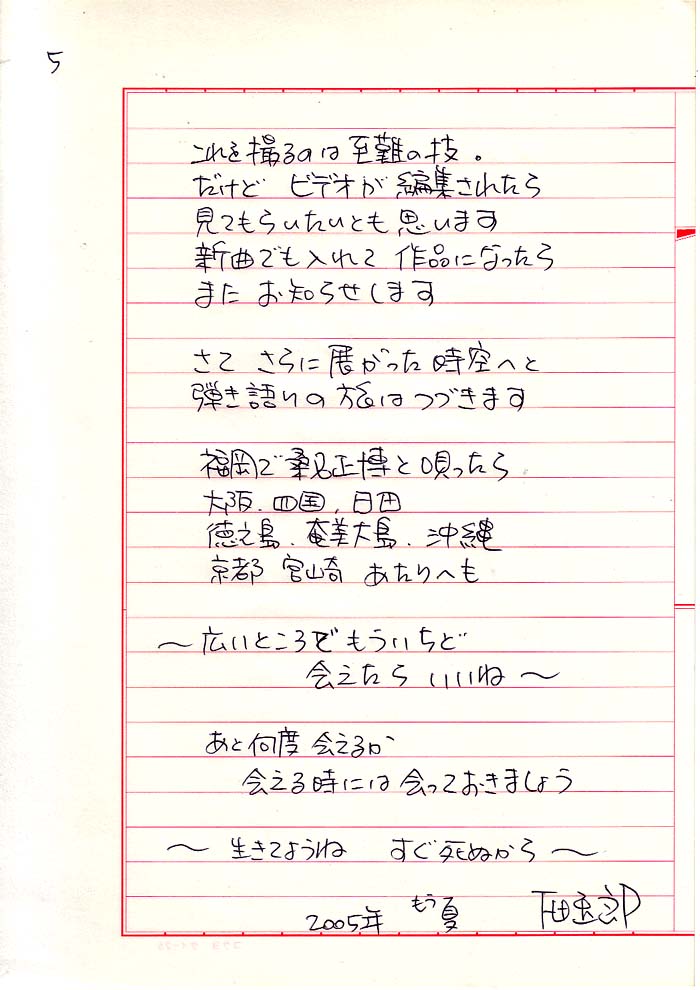 5
これを撮るのは至難の技。
だけど ビデオが編集されたら
見てもらいたいとも思います
新曲でも入れて 作品になったら
また お知らせします
さて さらに展がった時空へと
弾き語りの旅はつづきます
福岡で桑名正博と唄ったら
大阪、四国、日田
徳之島、奄美大島、沖縄
京都 宮崎 あたりへも
〜広いところでもういちど
会えたら いいね〜
あと何度 会えるか
会える時には 会っておきましょう
〜 生きてようね すぐ死ぬから 〜
2005年 もう夏 下田逸郎